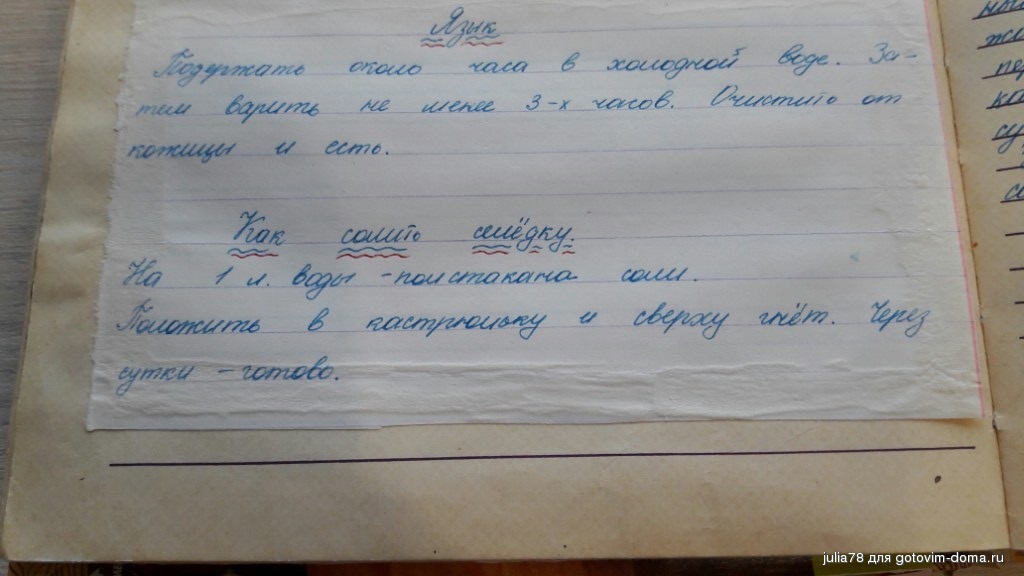 Язык
Подержать около часа в холодной воде. За-
тем варить не менее 3-х часов. Очистить от
кожицы и есть.
Как солить селёдку.
На 1 л. воды - полстакана соли.
Положить в кастрюльку и сверху гнёт. Через
сутки - готово.
julia78 для gotovim-doma.ru